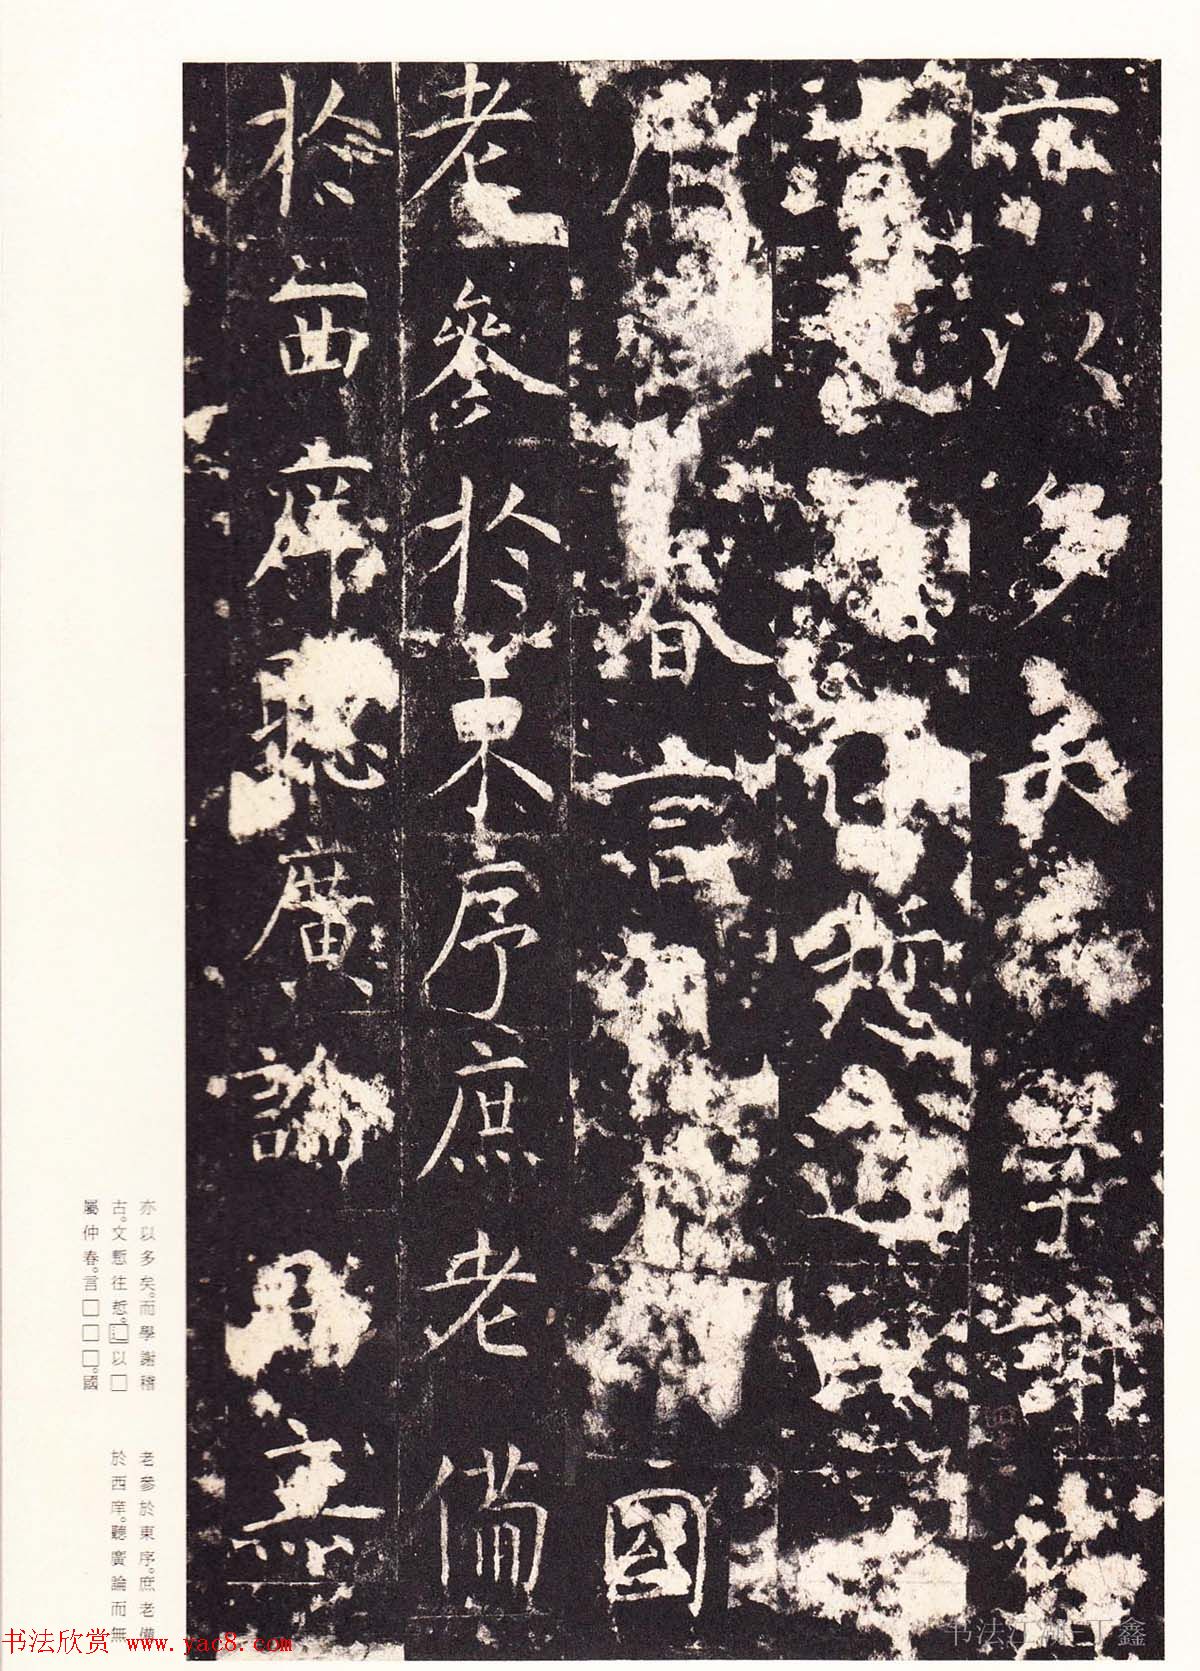 亦以多矣而學謝稽
慙道
屬春言國
老參於東序庶老備
於西庠聽廣論而無
亦以多矣。而學謝稽
古。文慙往哲。□以□
屬仲春。言□□□。國
老參於東序。庶老備
於西庠。聽廣論而無
书法欣赏 www.yac8.com
书法江湖-丁鑫